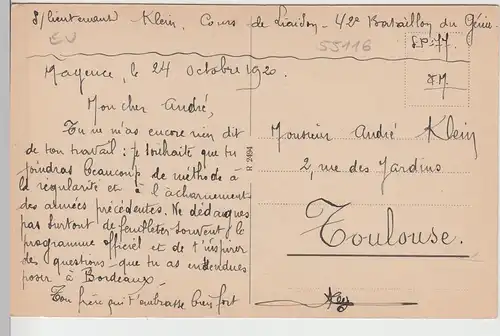 S/lieutenant Klein, Cours de Liaison - 42e Bataillon du Génie.
EV
55116
S.P. 77
F.M.
Mayence, le 24 Octobre 1920.
Mon cher André,
Tu ne m'as encore rien dit
de ton travail : je souhaite que tu
joindras beaucoup de méthode à
la régularité et à l'acharnement
des années précédentes. Ne dédaignes
pas surtout de feuilleter souvent le
programme officiel et de t'inspirer
des questions que tu as entendues
poser à Bordeaux.
Ton frère qui t'embrasse bien fort
R 2494
Monsieur André Klein
2, rue des Jardins
Toulouse.